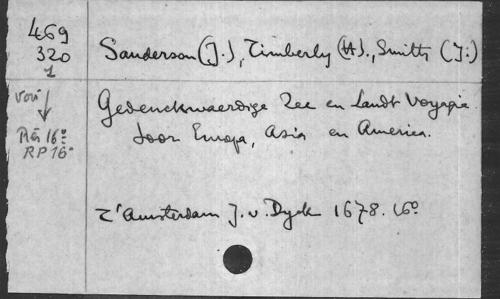 469
320
1
Sanderson (J.), Timberly (H)., Smith (J:)
voir
Rés 16º
RP 16º
Gedenckwaerdige Zee en Landt Voyagie
door Europa, Asia en America.
T'Amsterdam J. v. Dyck 1678. 16º